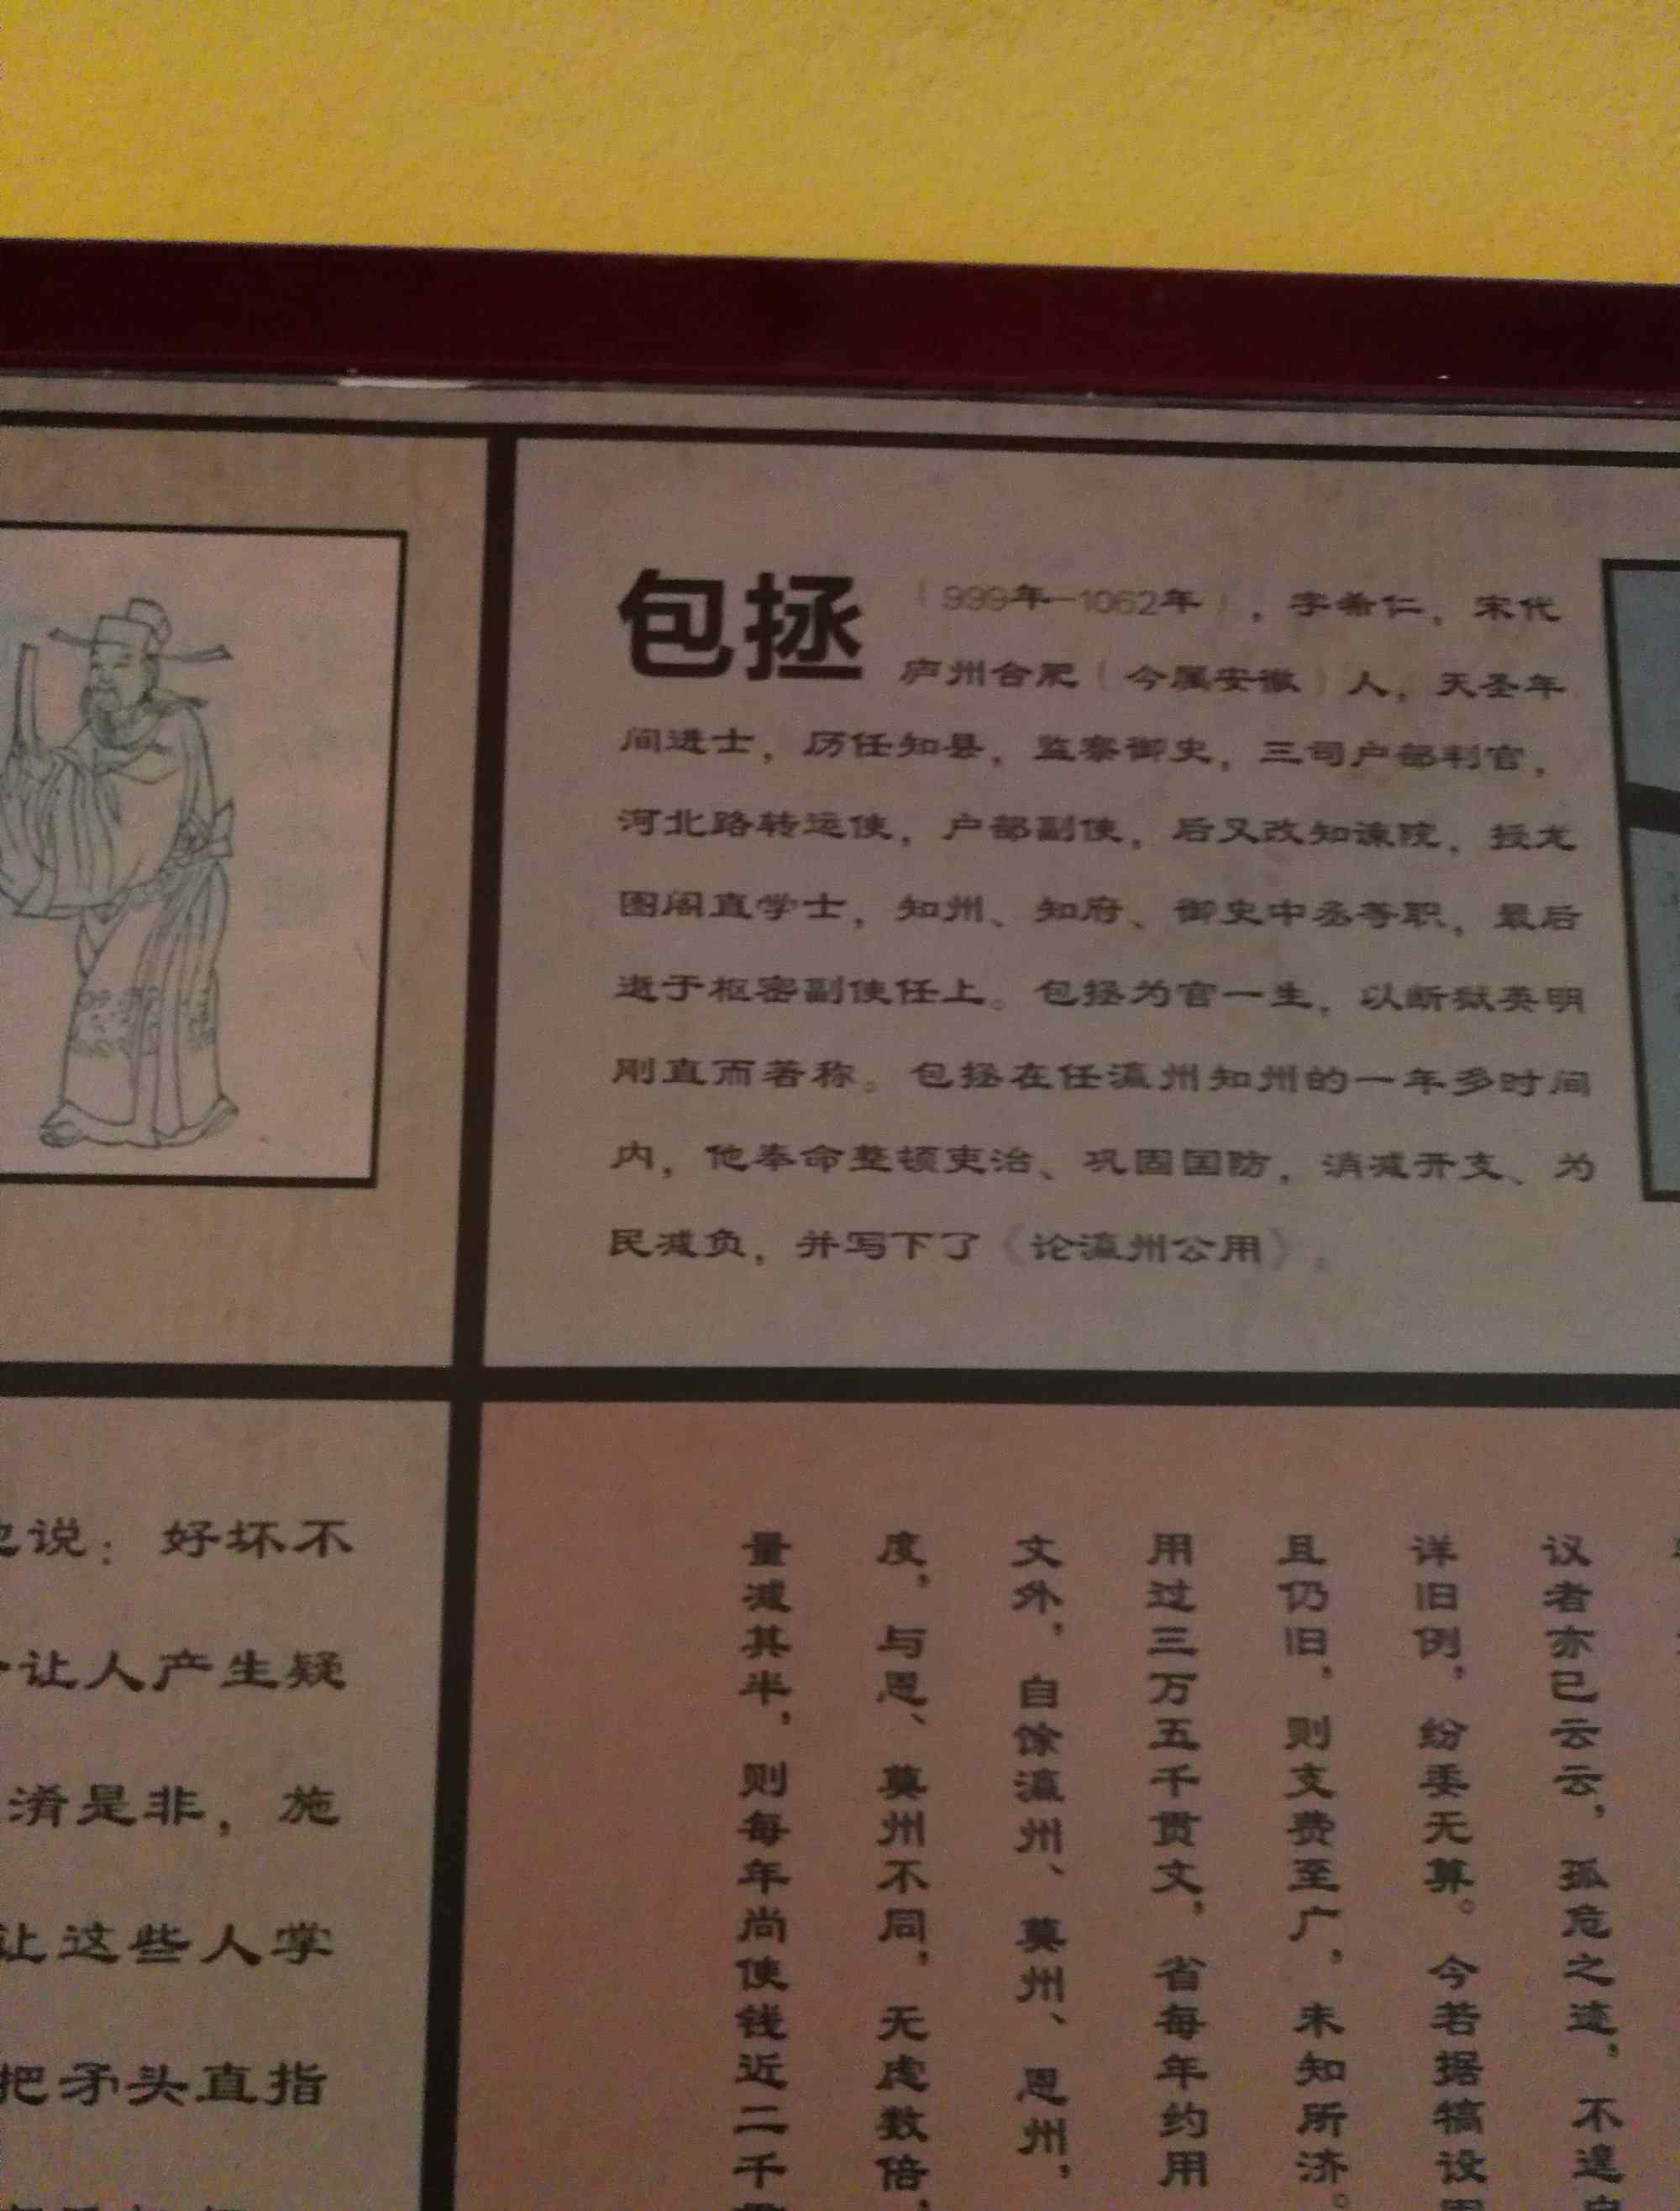 包拯 (999年-1062年),字希仁,宋代
庐州合肥(今属安徽)人,天圣年
间进士,历任知县,监察御史,三司户部判官,
河北路转运使,户部副使,后又改知谏院,授龙
图阁直学士,知州、知府、御史中丞等职,最后
逝于枢密副使任上。包拯为官一生,以断狱英明
刚直而著称。包拯在任瀛州知州的一年多时间
内,他奉命整顿吏治、巩固国防,消减开支、为
民减负,并写下了《论瀛州公用》。
说:好坏不
让人产生疑
淆是非,施
让这些人掌
把矛头直指
议者亦已云云,孤危之迹,不遑
详旧例,纷委无算。今若据犒设
且仍旧,则支费至广,未知所济。
用过三万五千贯文,省每年约用
文外,自馀瀛州、莫州、恩州,
度,与恩、莫州不同,无虑数倍,
量减其半,则每年尚使钱近二千